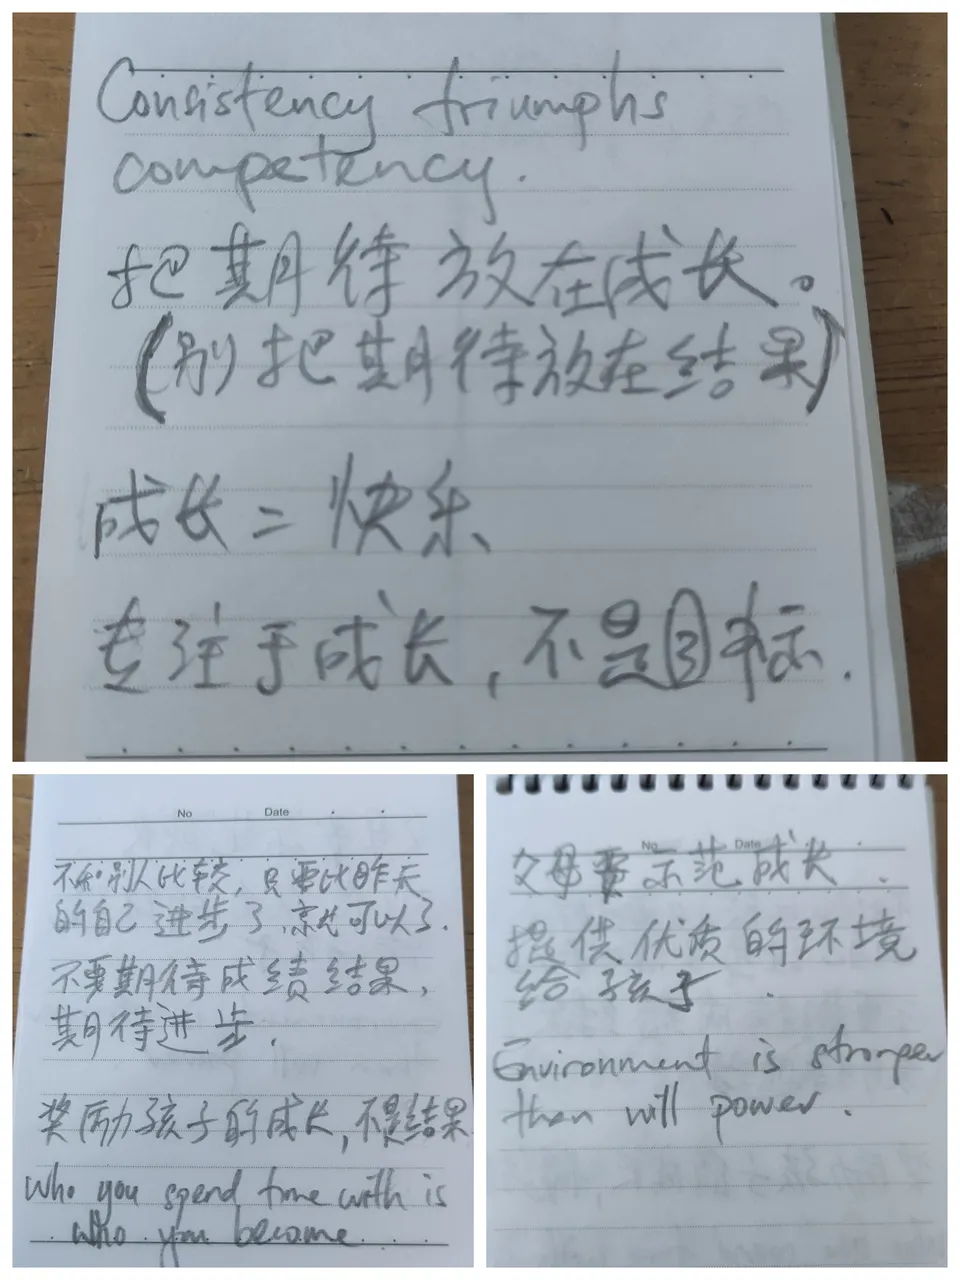 Consistency triumphs
competency.
把期待放在成长。
(别把期待放在结果)
成长=快乐
专注于成长,不是目标.
No Date
不和别人比较,只要比昨天
的自己进步了,就可以了.
不要期待成绩结果,
期待进步.
奖励孩子的成长,不是结果
Who you spend time with is
who you become
No Date
父母要示范成长.
提供优质的环境
给孩子.
Environment is stronger
than will power.